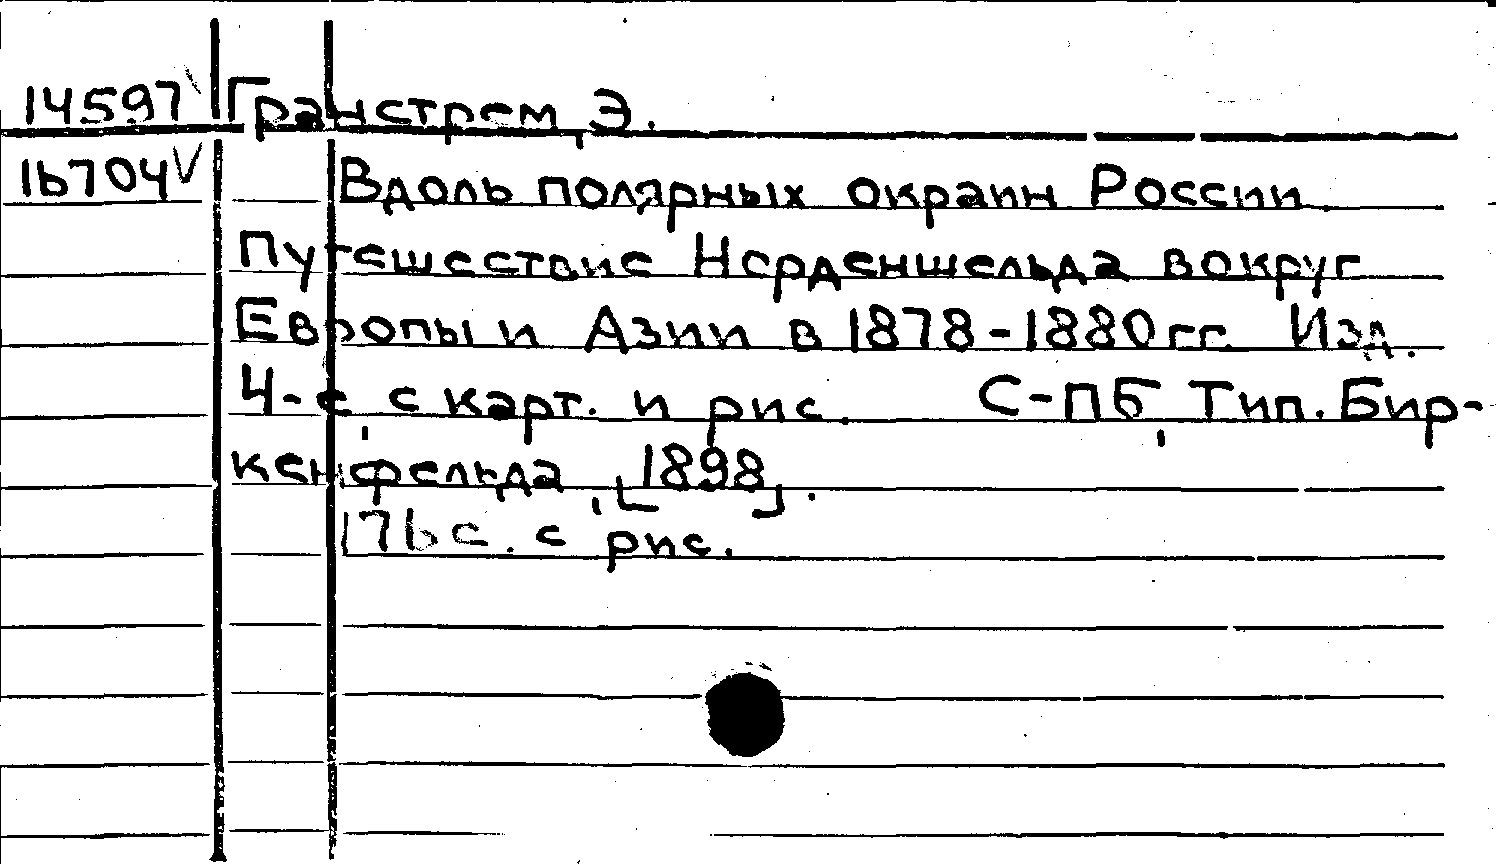 14597 Гранстрем, Э.
16704 V Вдоль полярных окраин России.
Путешествие Норденшельда вокруг
Европы и Азии в 1878-1880 гг. Изд.
4-е, с карт. и рис. С-ПБ, Тип. Бир-
кенфельда, [1898].
176 с. с рис.